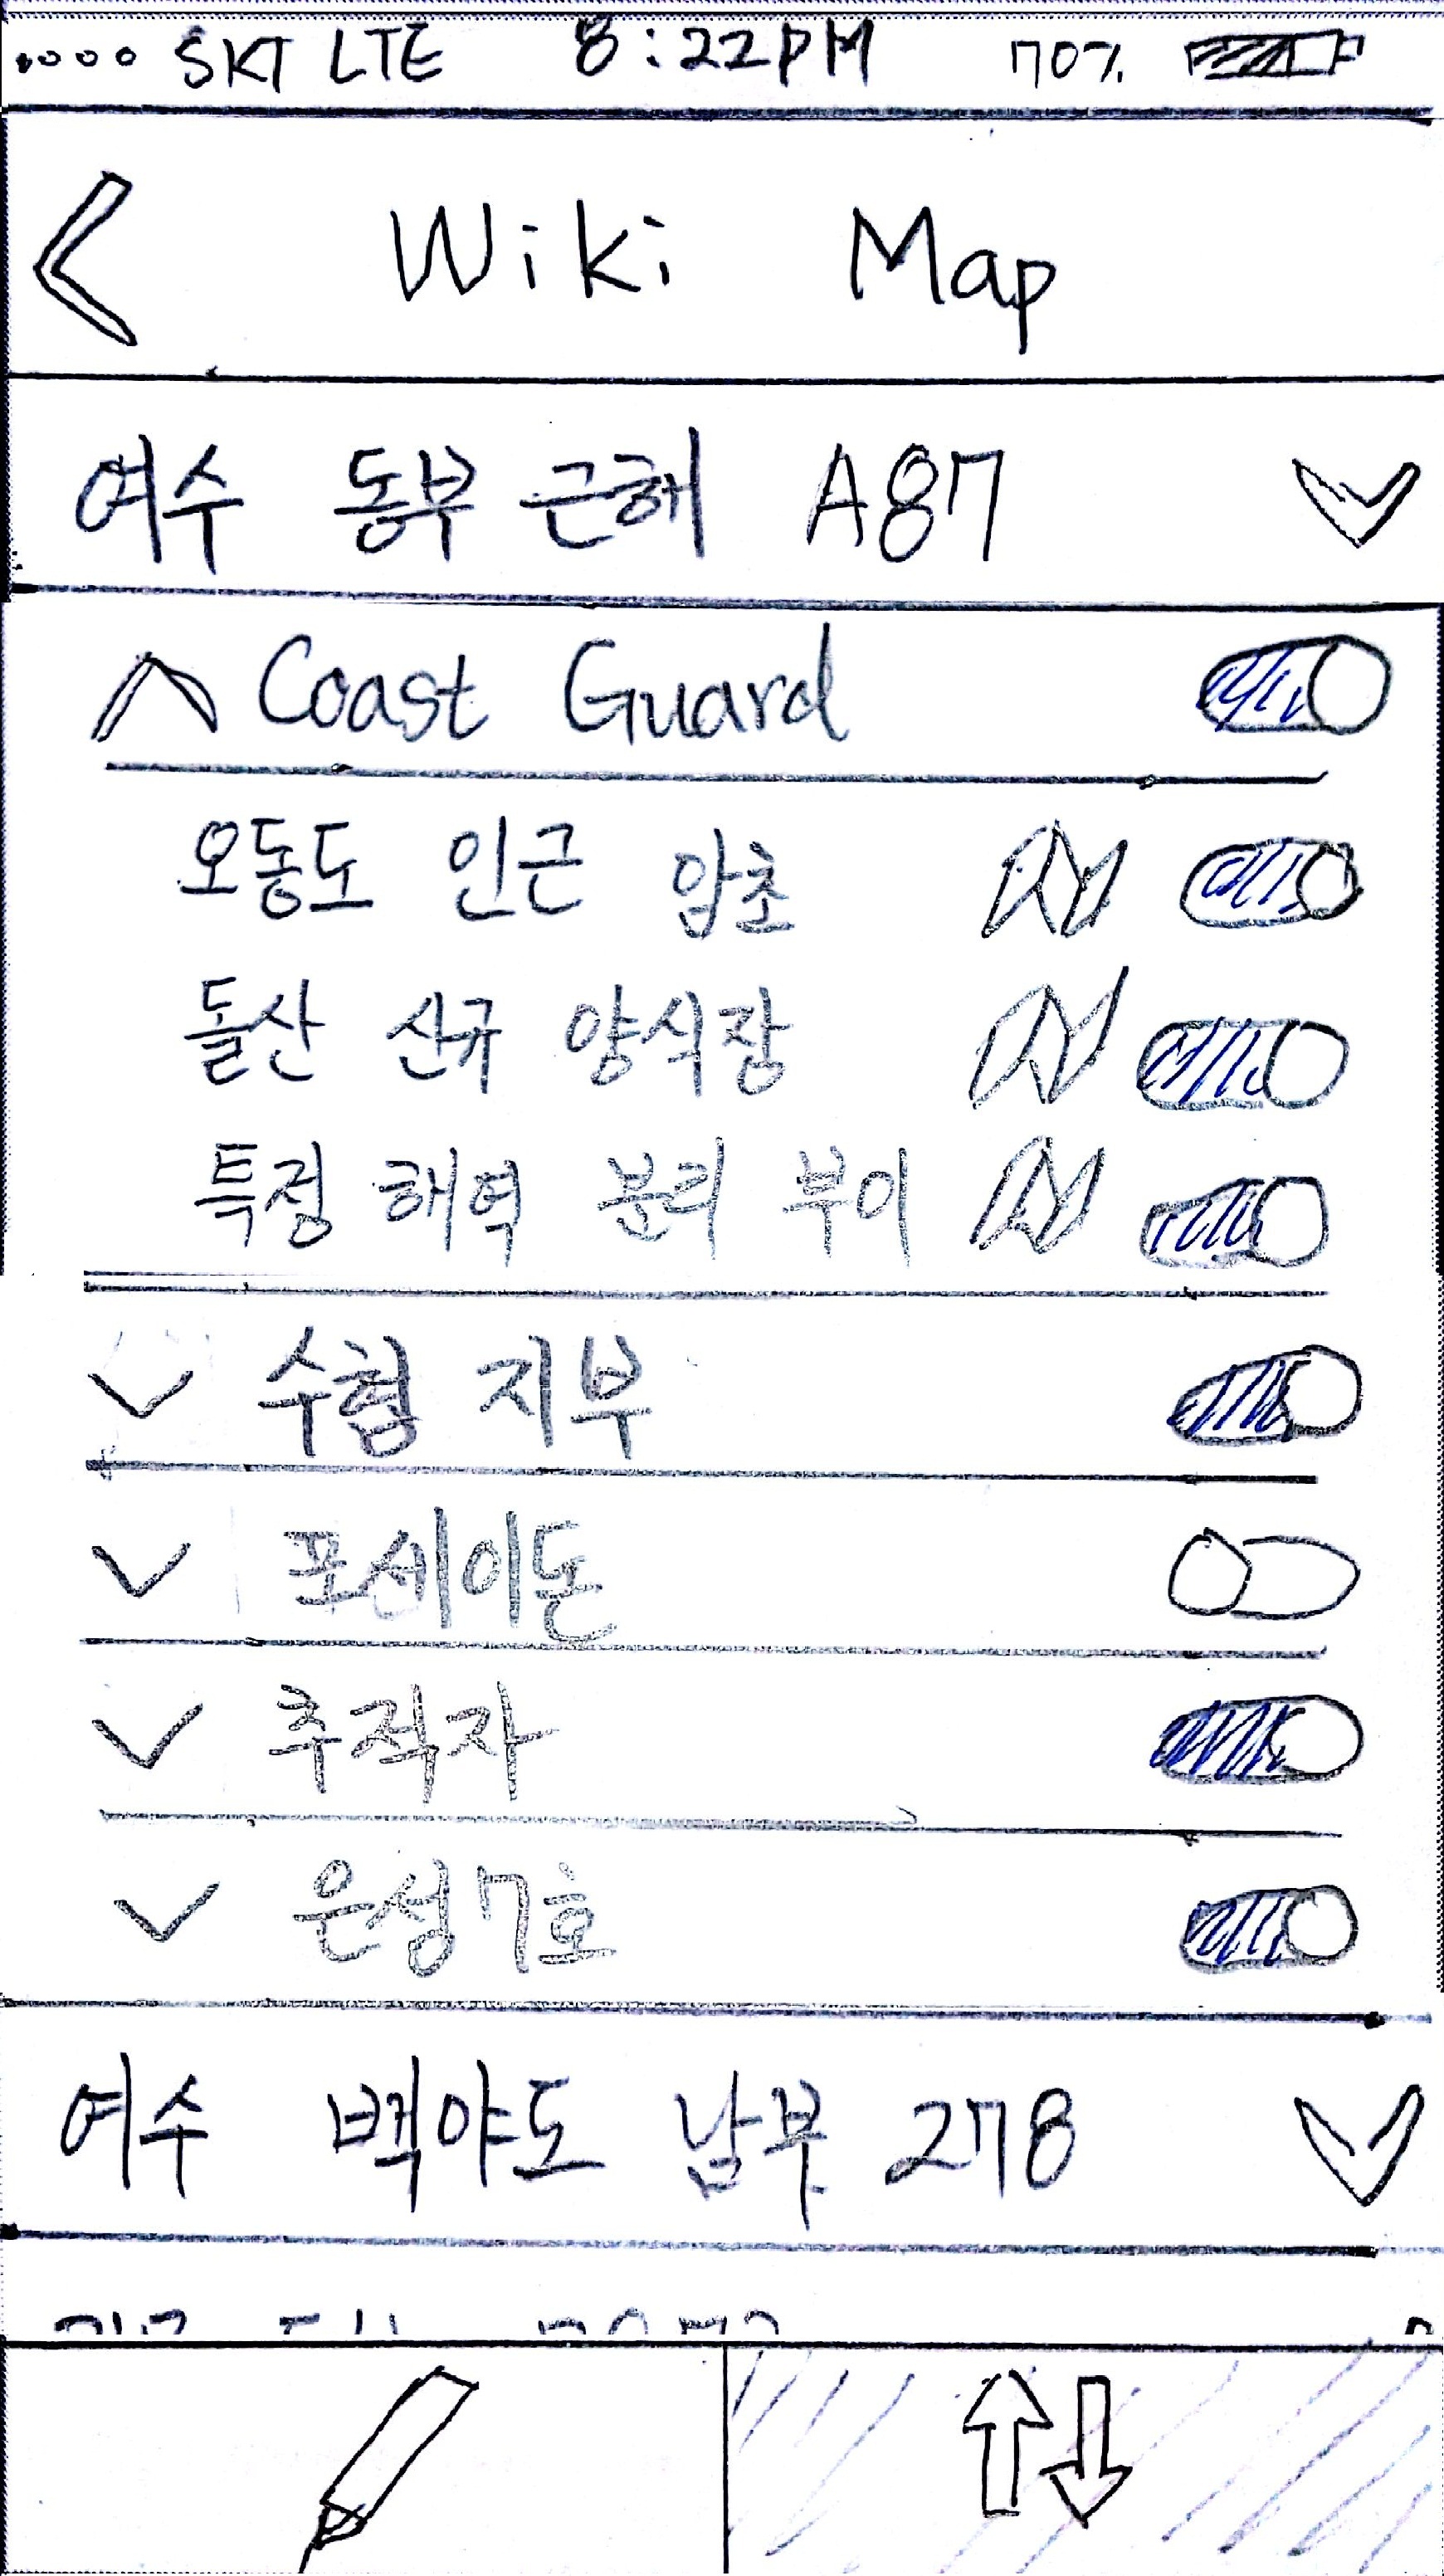 SKT LTE 8:22PM 70%
Wiki Map
여수 동부 근해 A87
Coast Guard
오동도 인근 암초
돌산 신규 양식장
특정 해역 분리 부이
수협 지부
포세이돈
추적자
은성7호
여수 백야도 남부 278